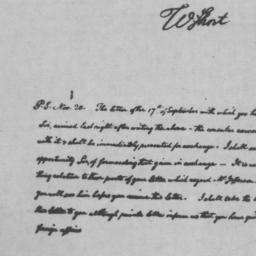 W Short
P.S. Nov. 20. The letter of the 17th of September with which you ho
Sir, arrived last night after writing the above - the circular
with it & shall be immediately presented for exchange. I shall
opportunity Sir, of forwarding that given in exchange - It is
thing relative to those parts of your letter which regard Mr. Jefferson
you will see him before you receive this letter. I shall take the
this letter to you although private letters inform us that you have
foreign affairs